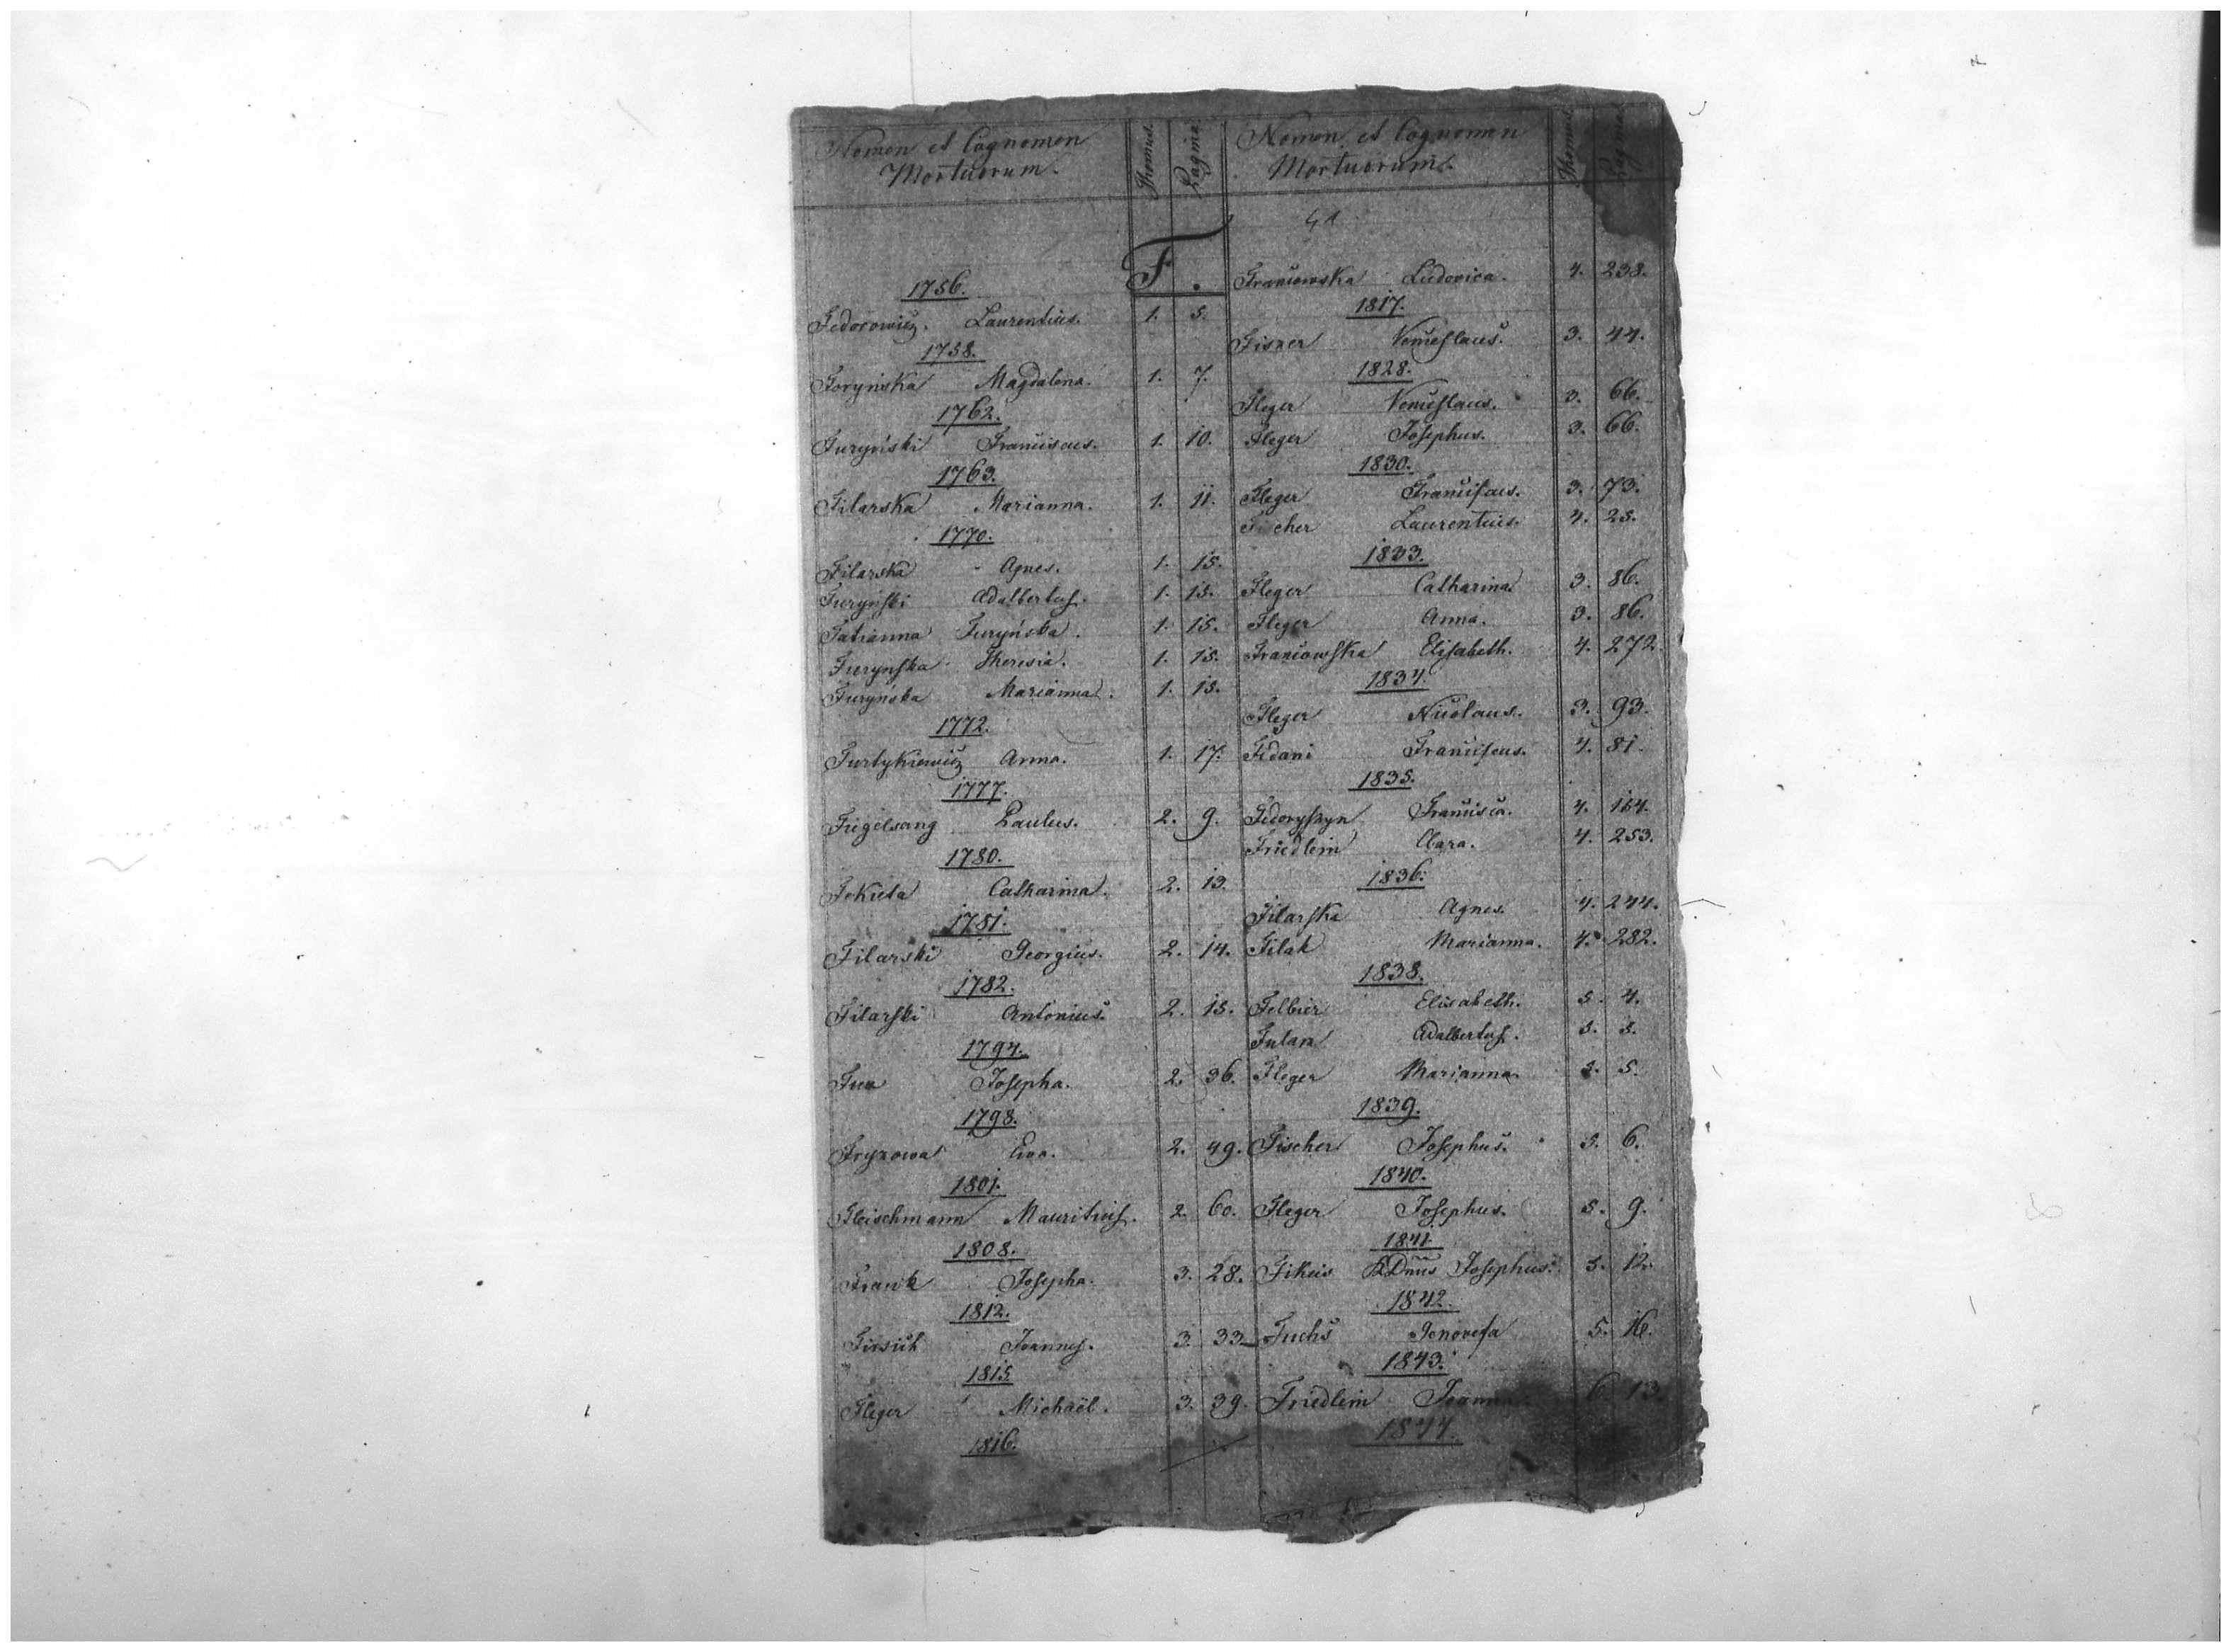 Nomen et Cognomen
Mortuorum.
Thomus.
Pagina.
F.
1756.
Fedorowicz. Laurentius. 1. 5.
1758.
Foryńska Magdalena. 1. 7.
1762.
Furyński Franciscus. 1. 10.
1763.
Filarska Marianna. 1. 11.
1770.
Filarska Agnes. 1. 15.
Furyński Adalbertus. 1. 15.
Tatianna Furyńska. 1. 15.
Furynska Theresia. 1. 15.
Furyńska Marianna. 1. 15.
1772.
Furtykiewicz Anna. 1. 17.
1777.
Fiegelsang Paulus. 2. 9.
1780.
Fekieta Catharina. 2. 13.
1781.
Filarski Georgius. 2. 14.
1782.
Filarski Antonius. 2. 15.
1794.
Josepha. 2. 36.
1798.
Fryzowa Eva. 2. 49.
1801.
Fleischmann Mauritius. 2. 60.
1808.
Frank Josepha. 3. 28.
1812.
Joannes. 3. 33.
1815
Fleger Michaël. 3. 39.
1816.
Nomen et Cognomen
Mortuorum.
Thomus.
Pagina.
41
Franciowska Ludovica. 4. 238.
1817.
Fisner Venceslaus. 3. 44.
1828.
Fleger Venceslaus. 3. 66.
Fleger Josephus. 3. 66.
1830.
Fleger Franciscus. 3. 73.
Fischer Laurentius. 4. 25.
1833.
Fleger Catharina 3. 86.
Fleger Anna. 3. 86.
Franciowska Elisabeth. 4. 272.
1834.
Fleger Nicolaus. 3. 93.
Fidani Franciscus. 4. 81.
1835.
Fedoryszyn Francisca. 4. 164.
Friedlein Clara. 4. 253.
1836.
Filarska Agnes. 4. 244.
Filak Marianna. 4. 282.
1838.
Felbier Elisabeth. 5. 4.
Fulam Adalbertus. 5. 5.
Fleger Marianna. 5. 5.
1839.
Fischer Josephus. 5. 6.
1840.
Fleger Josephus. 5. 9.
1841.
Fikeis RDnus Josephus. 5. 12.
1842.
Fuchs Genovefa 5. 16.
1843.
Friedlein Joanna 6 13.
1844.